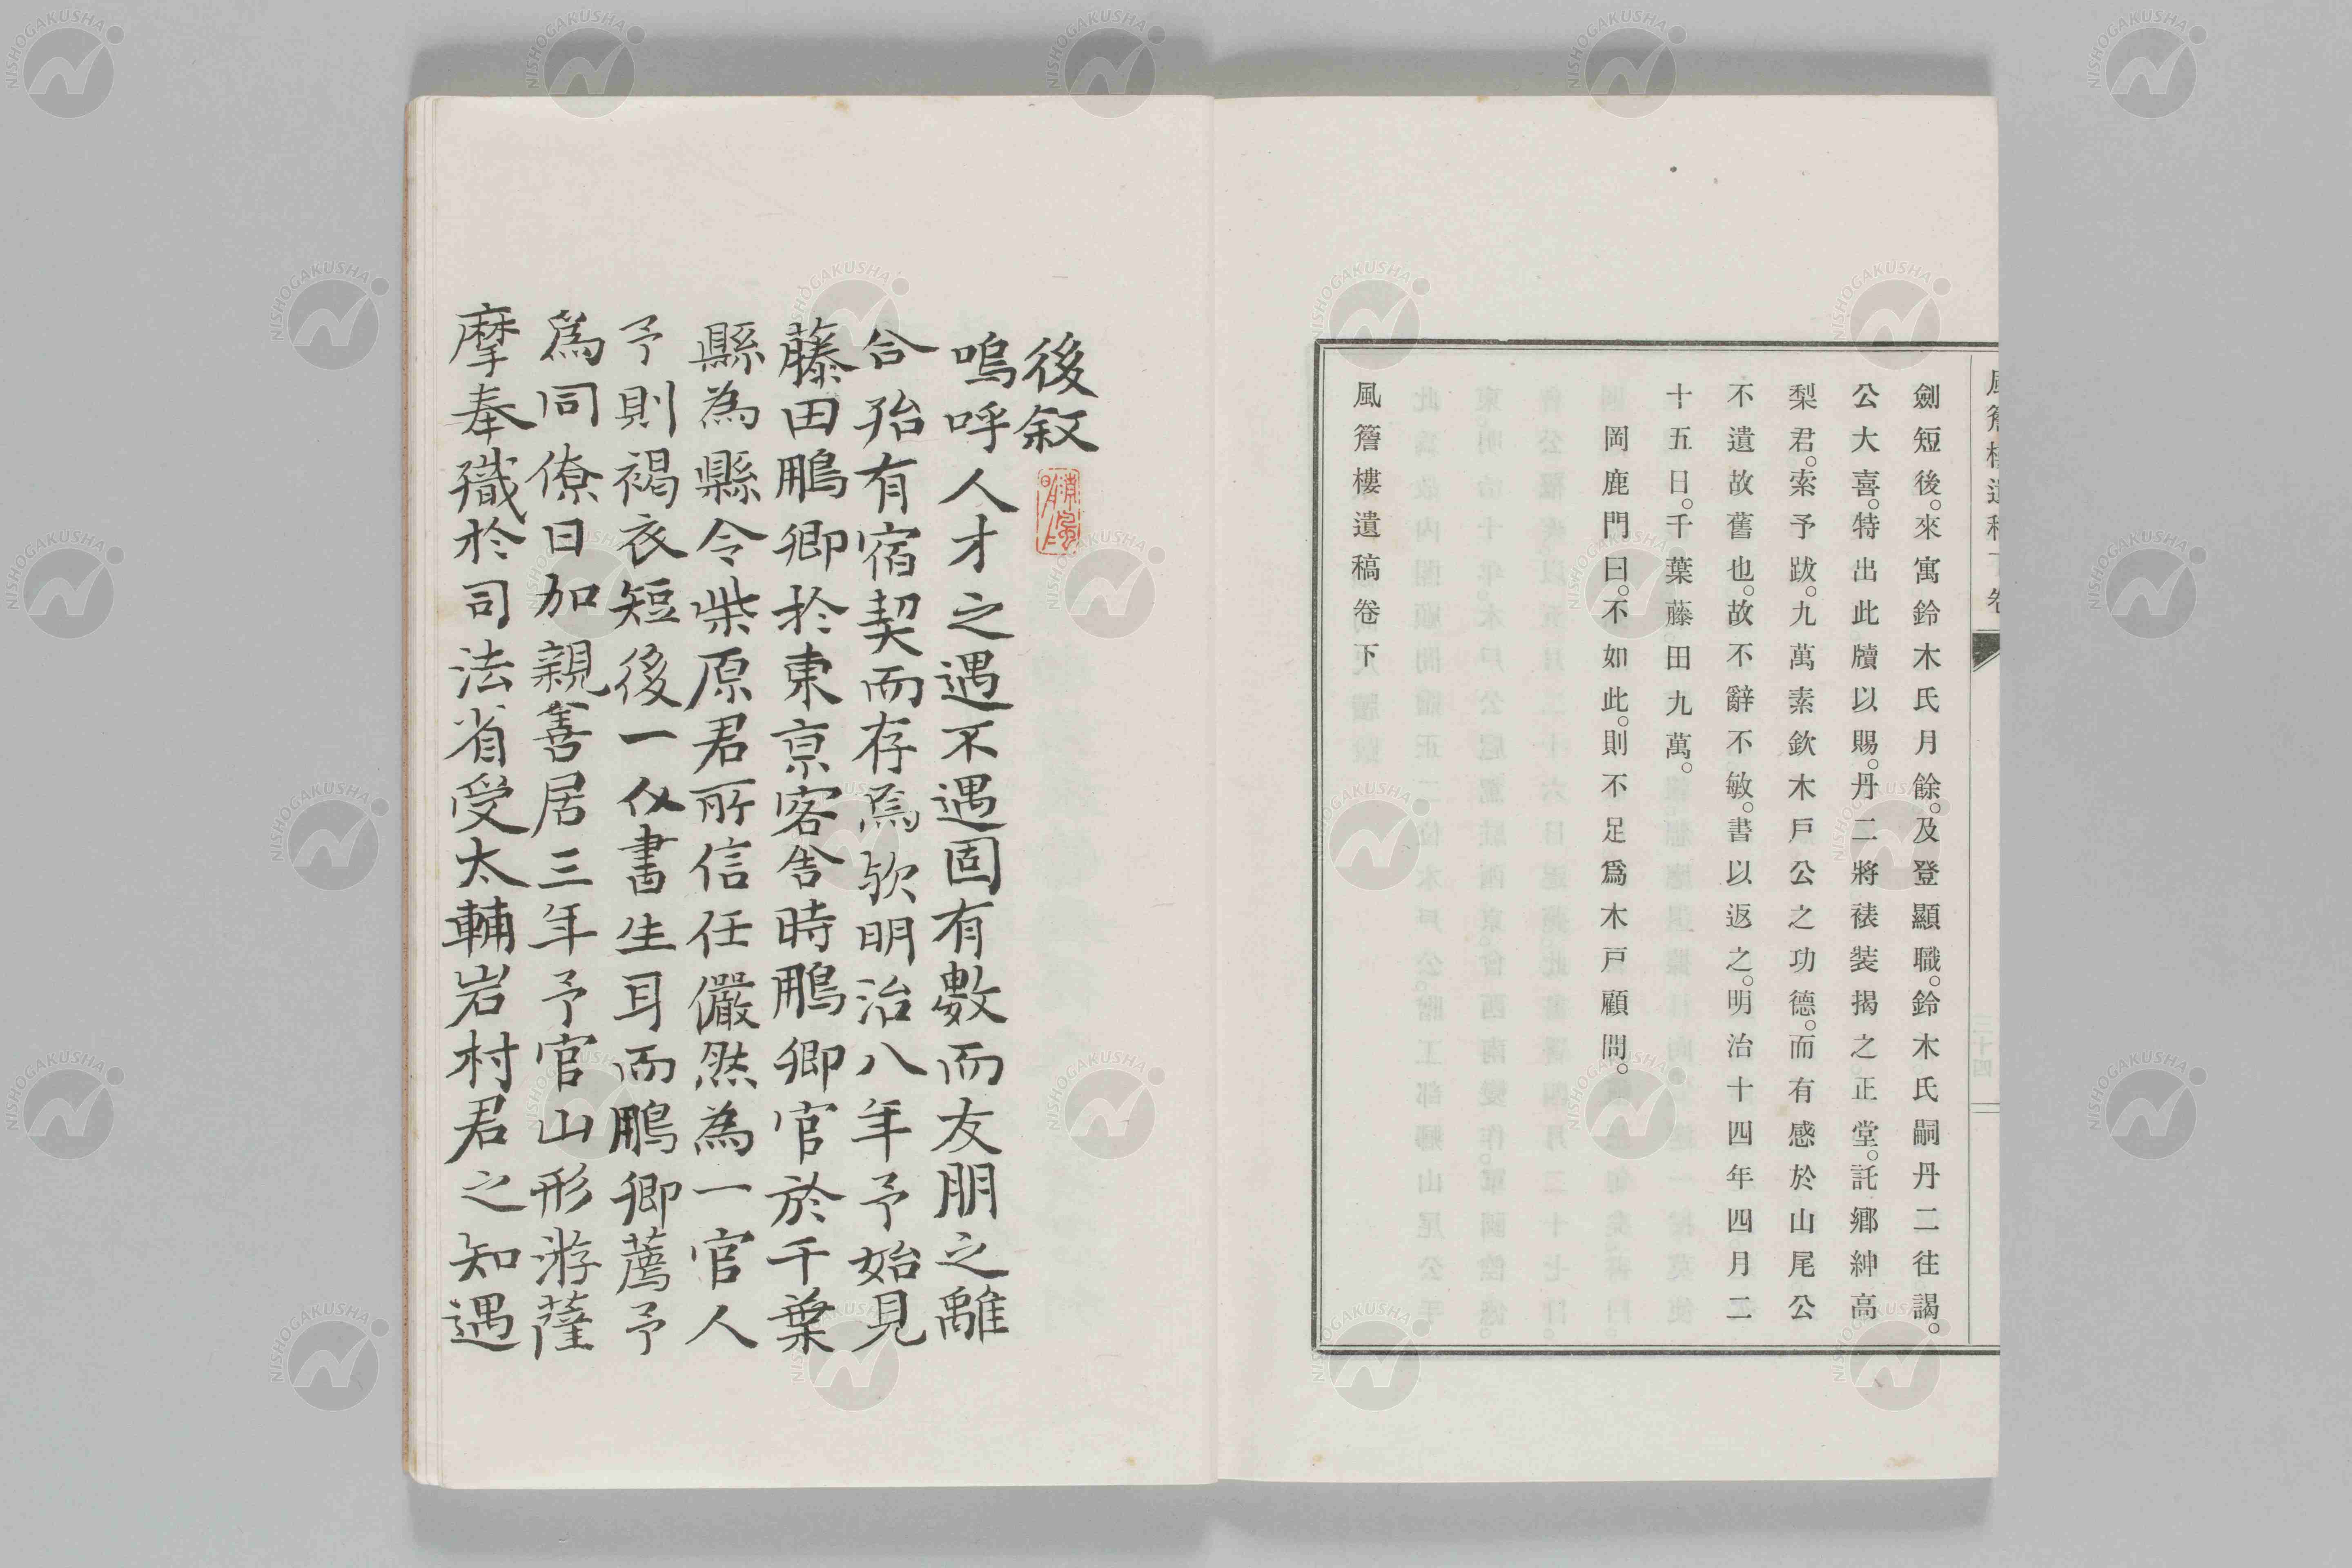 劍短後。來寓鈴木氏月餘。及登顯職。鈴木氏嗣丹二往謁。
公大喜。特出此牘以賜。丹二將裱装揭之正堂。託鄉紳高
梨君。索予跋。九萬素欽木戸公之功德。而有感於山尾公
不遺故舊也。故不辭不敏。書以返之。明治十四年四月二
十五日。千葉藤田九萬。
岡鹿門曰。不如此。則不足爲木戸顧問。
風簷樓遺稿卷下
後叙
嗚呼人才之遇不遇固有數而友朋之離
合殆有宿契而存焉欤明治八年予始見
藤田鵬卿於東京客舎時鵬卿官於千葉
縣為縣令柴原君所信任儼然為一官人
予則褐衣短後一介書生耳而鵬卿薦予
為同僚日加親善居三年予官山形游薩
摩奉職於司法省受太輔岩村君之知遇
NISHOGAKUSHA